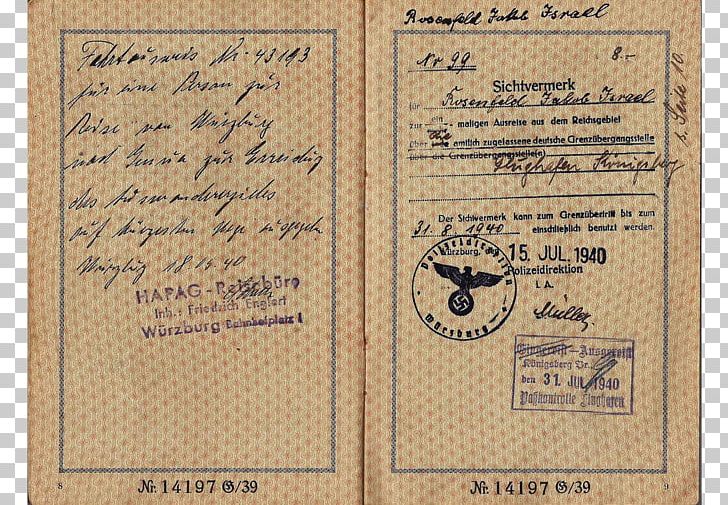 Fahrtausweis Nr. 43193
für eine Person zur
Reise von Würzburg
nach Genua zur Erreichung
des Auswandererzieles
auf kürzestem Wege ausgegeben
Würzburg 18.
HAPAG-Reisebüro
Inh.: Friedrich Englert
Würzburg Bahnhofplatz 1
8
Nr. 14197 G/39
Rosenfeld Jakob Israel
Nr 99 8.-
s. Seite 10
Sichtvermerk
für Rosenfeld Jakob Israel
zur ein maligen Ausreise aus dem Reichsgebiet
über amtlich zugelassene deutsche Grenzübergangsstelle
über die Grenzübergangsstelle(n)
Flughafen Königsberg
Der Sichtvermerk kann zum Grenzübertritt bis zum
31.8.1940 einschließlich benutzt werden.
Würzburg, 15. JUL. 1940
Polizeidirektion
I. A.
Müller
Polizeidirektion
Würzburg
Eingereist - Ausgereist
Königsberg Pr.
den 31. JUL 1940
Paßkontrolle Flughafen
9
Nr. 14197 G/39